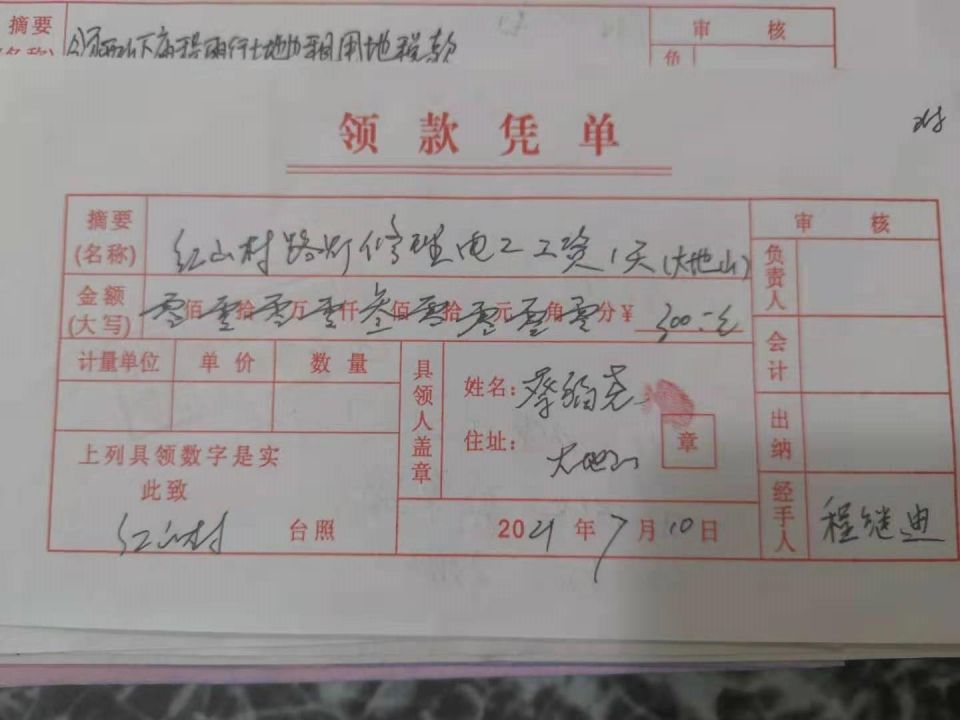 摘要
审 核
领款凭单
摘要(名称) 红山村路灯修理电工工资1天(大地山)
审 核
金额(大写) 零佰零拾零万零仟叁佰零拾零元零角零分 ¥ 300.元
负责人
计量单位 单价 数量
会计
具领人盖章
姓名:
住址: 大地山
章
出纳
上列具领数字是实
此致
红山村 台照
2021年7月10日
经手人 程继迪